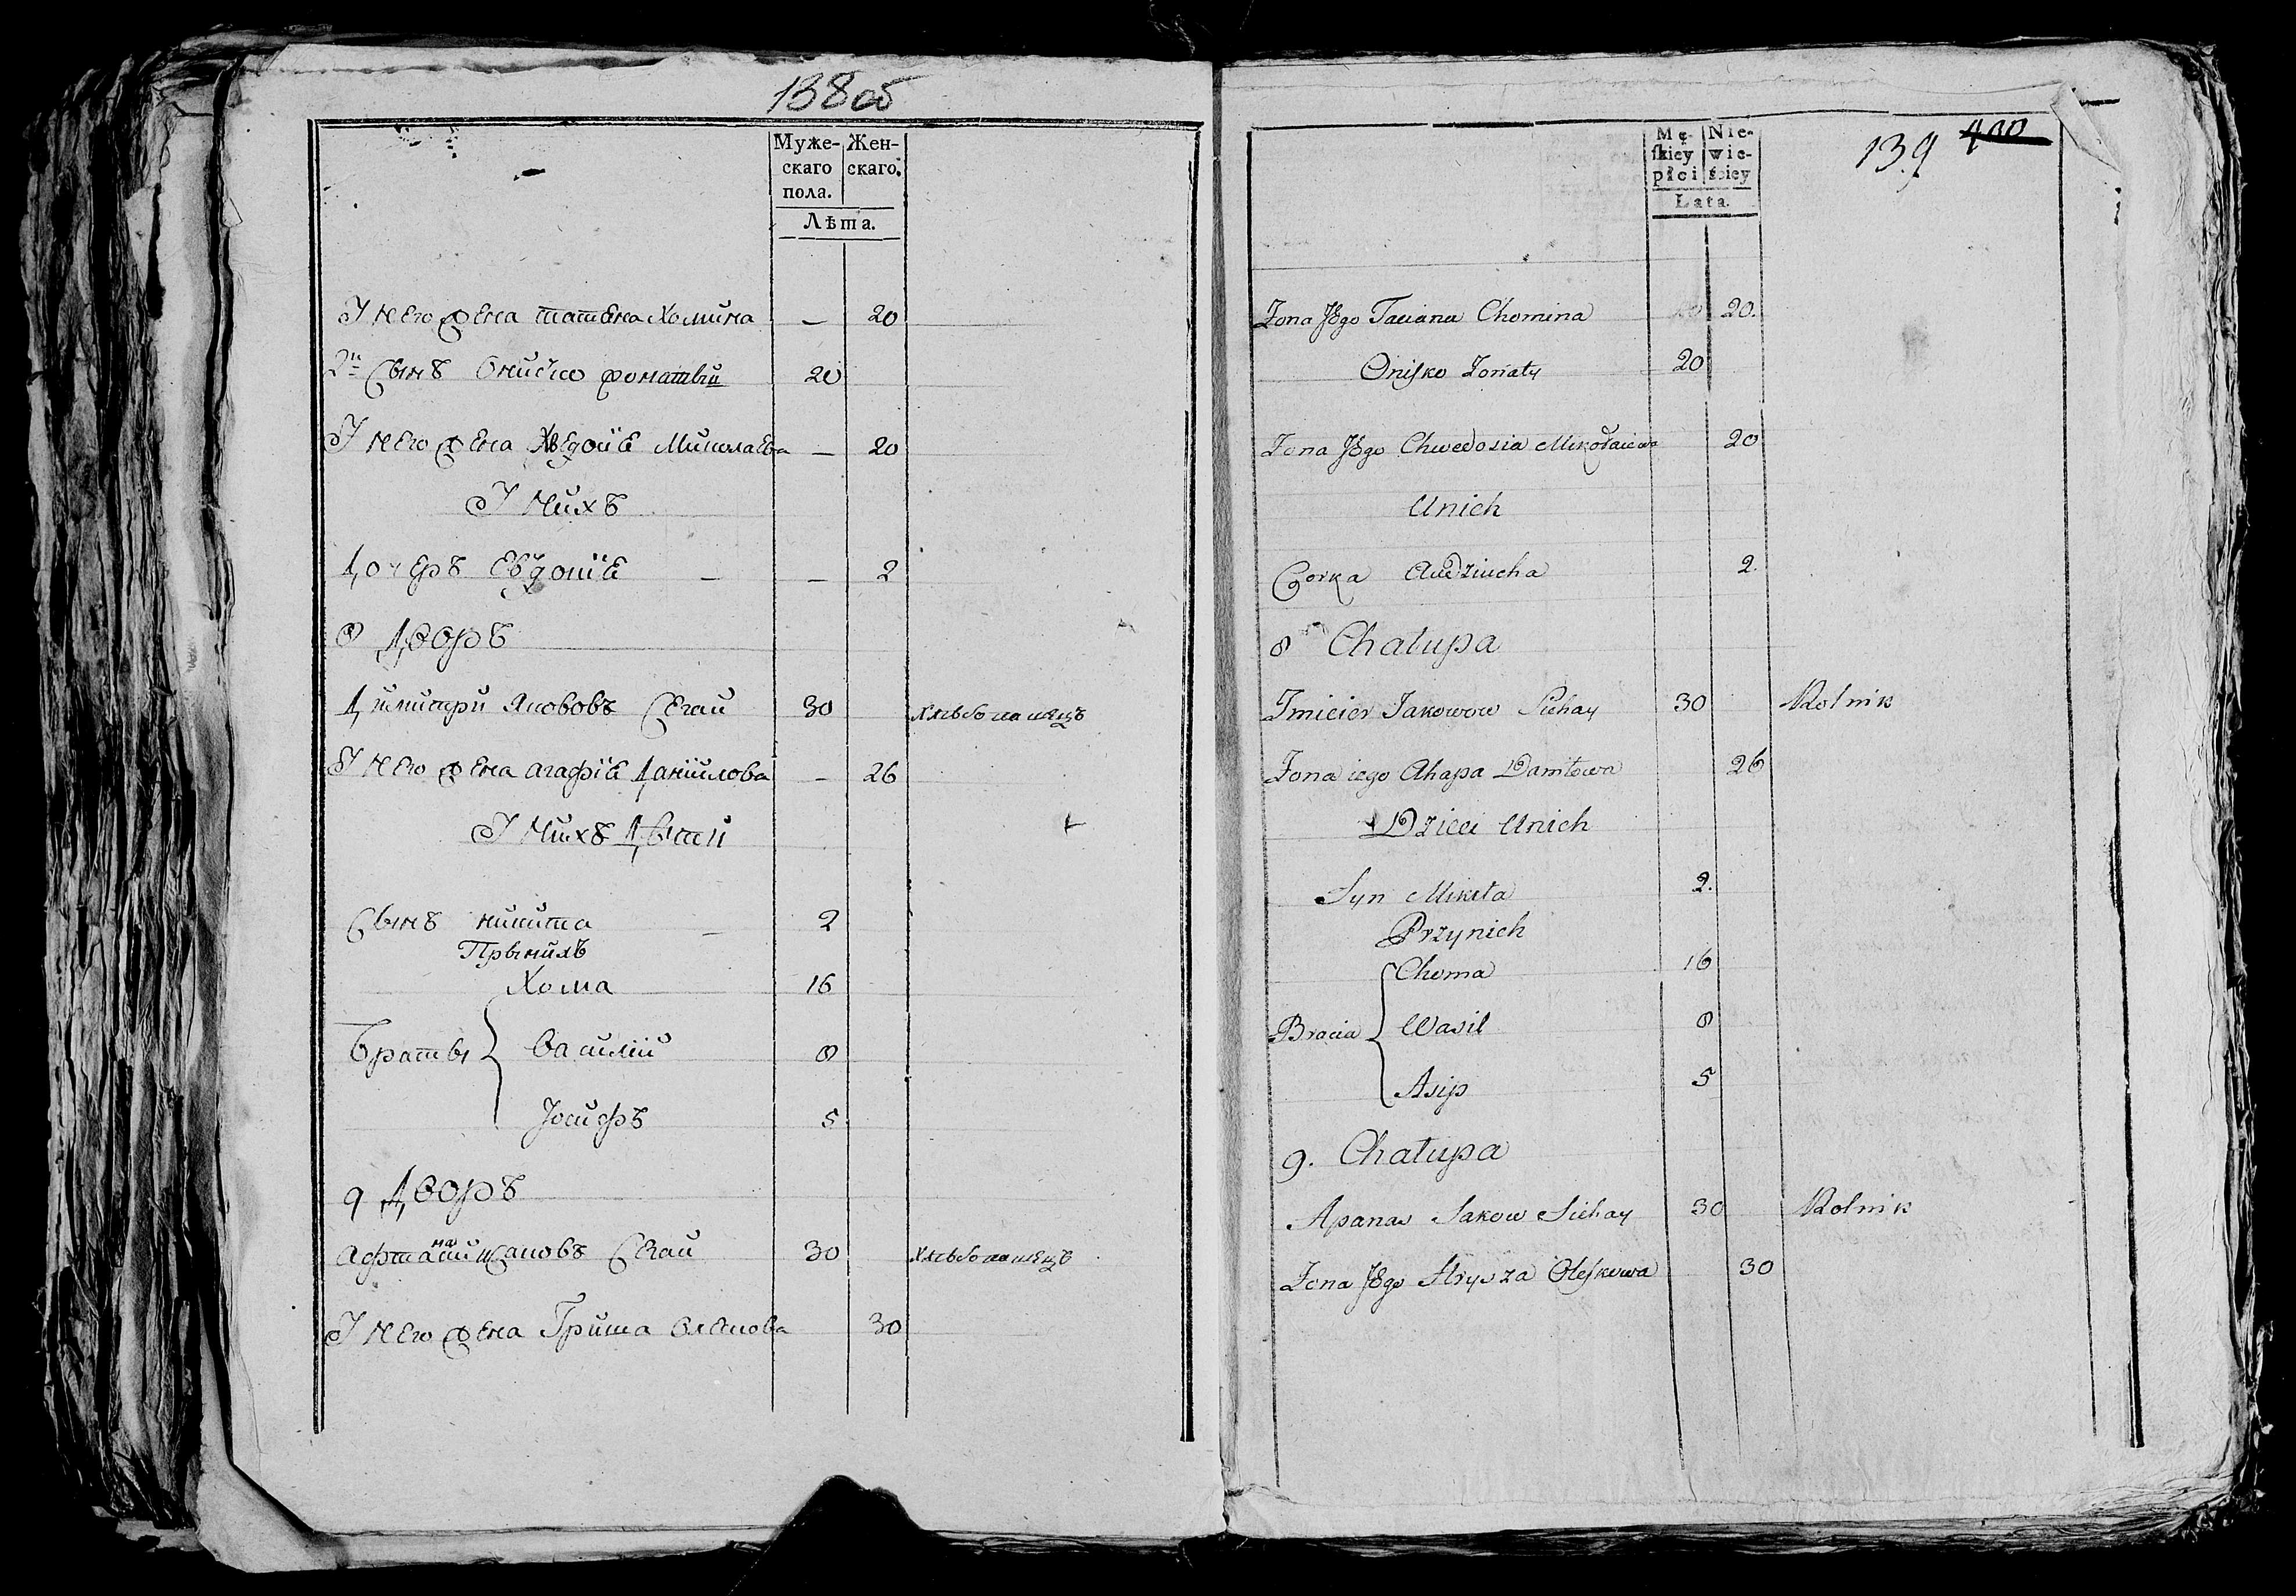 138об
Муже-
скаго
пола.
Жен-
скаго.
Лѣта.
У него жена татьяна Хомина — 20
2й Сынъ Ониско жонатый 20
У него жена Хведосія Миколаева — 20
У нихъ
Дочеръ Евдокія — — 2
8 Дворъ
Димитри Якововъ Сегай 30 Хлѣбопашецъ
У него жена агафія Даніилова — 26
У нихъ Дѣтей
Сынъ никита — 2
При нихъ
Хома 16
Браты Василій 8
Іосифъ 5
9 Дворъ
Сегай 30 Хлѣбопашецъ
У него жена Гриша 30
139 400
Mę-
skiey
płci
Nie-
wie-
ściey
Lata.
Zona Jego Taciana Chomina 20.
Onisko Zonaty 20
Zona Jego Chwedosia Mikołaiewa 20
Unich
Corka Audziucha 2.
8 Chałupa
Zmicier Jakowow Siehay 30 Rolnik
Zona iego Ahapa Daniłowa 26
Dzieci Unich
Syn Mikita 2.
Przynich
Choma 16
Bracia Wasil 8
Asip 5
9. Chałupa
Apanas Jakow Siehay 30 Rolnik
Zona Jego Hrysza Oleskowa 30